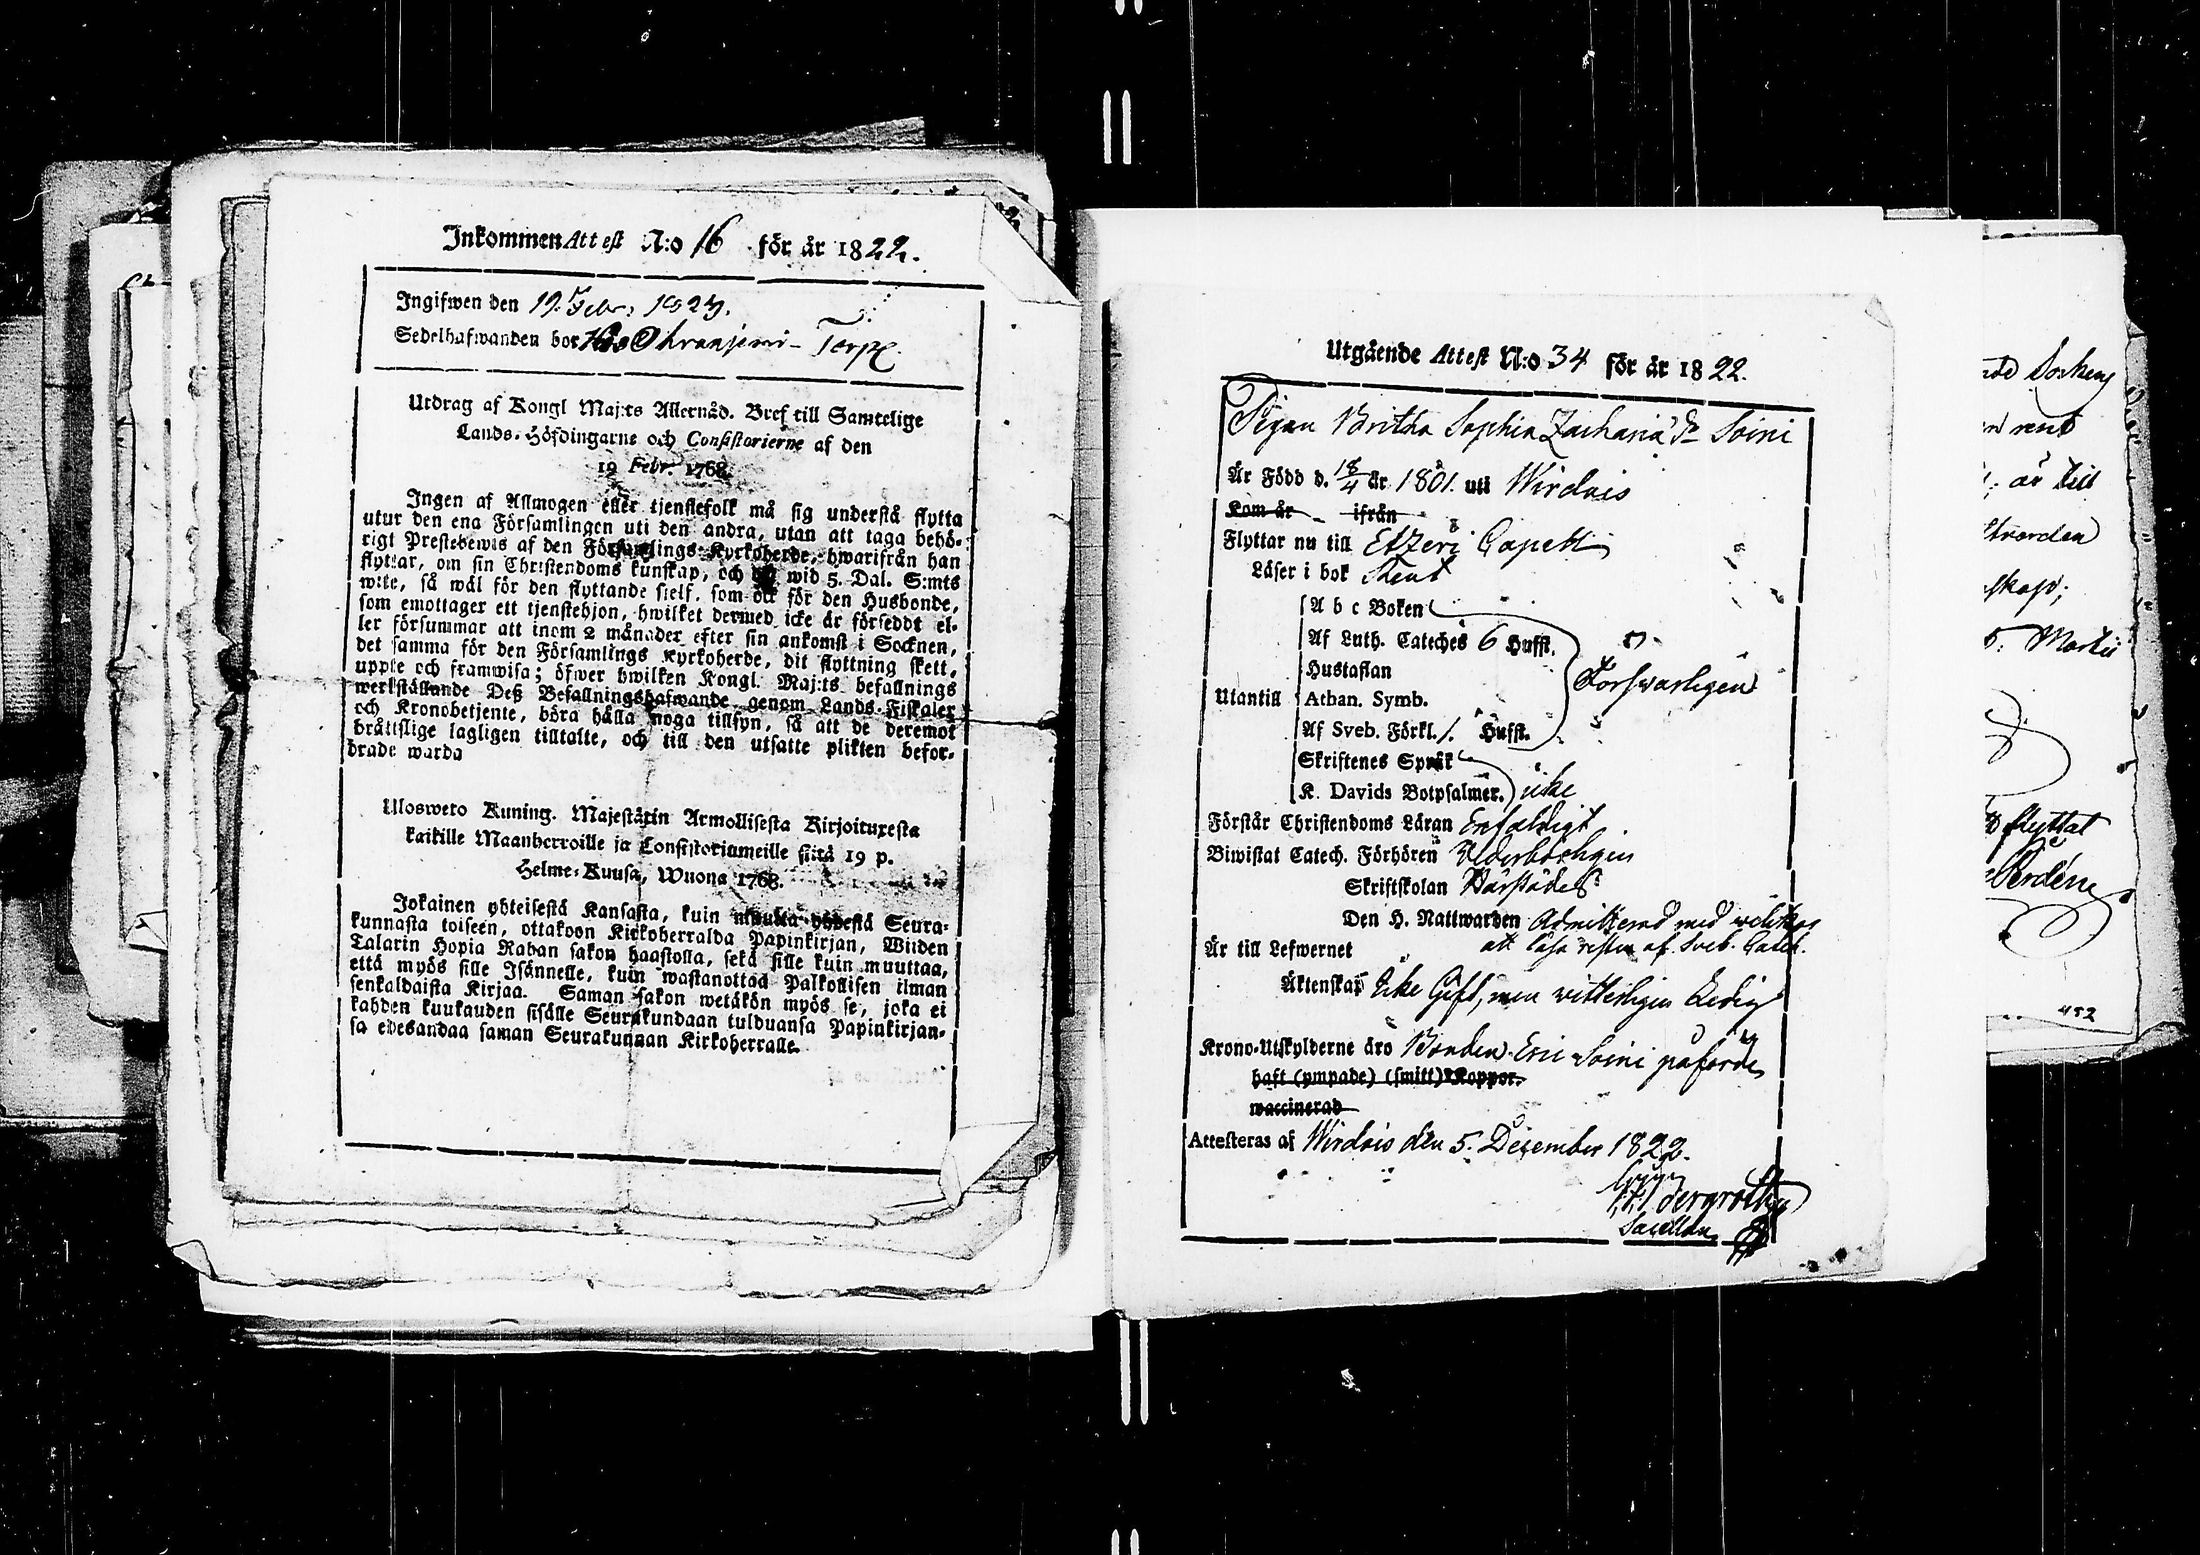 Inkommen Attest N:o 16 för år 1822.
Ingifwen den 19. Febr. 1823.
Sedelhafwanden bor Ohraajerwi- Torp.
Utdrag af Kongl Maj:ts Allernåd. Bref till Samtelige
Lands-Höfdingarne och Consistorierne af den
19 Febr. 1768.
Ingen af Allmogen eller tjenstefolk må sig understå flytta
utur den ena Församlingen uti den andra, utan att taga behö-
rigt Prestebewis af den Församlings-Kyrkoherde, hwarifrån han
flyttar, om sin Christendoms kunskap, och wid 5. Dal. S:mts
wite, så wäl för den flyttande sielf, som ock för den Husbonde,
som emottager ett tjenstehjon, hwilket dermed icke är försedt el-
ler försummar att inom 2 månader efter sin ankomst i Socknen,
det samma för den Församlings Kyrkoherde, dit flyttning skett,
uppte och framwisa; öfwer hwilken Kongl. Maj:ts befallnings
werkställande Deß Befallningshafwande genom Lands-Fiskaler
och Kronobetjente, böra hålla noga tillsyn, så att de deremot
bråttslige lagligen tilltalte, och till den utsatte plikten befor-
drade warda
Ulosweto Kuning. Majestätin Armollisesta Kirjoituxesta
kaikille Maanherroille ja Consistoriumeille siitä 19 p.
Helme-Kuusa, Wuona 1768.
Jokainen yhteisestä Kansasta, kuin muutta yhdestä Seura-
kunnasta toiseen, ottakoon Kirkoherralda Papinkirjan, Wiiden
Talarin Hopia Rahan sakon haastolla, sekä sille kuin muuttaa,
että myös sille Isännelle, kuin wastanottaa Palkollisen ilman
senkaldaista Kirjaa. Saman sakon wetäkön myös se, joka ei
kahden kuukauden sisälle Seurakundaan tulduansa Papinkirjan-
sa edesandaa saman Seurakunnan Kirkoherralle.
Utgående Attest N:o 34 för år 1822.
Pigan Britha Sophia Zachariæ dr Soini
Är Född d. 18/4 år 1801. uti Wirdois
Kom år ifrån
Flyttar nu till Etzeri Capell
Läser i bok Rent
A b c Boken
Af Luth. Cateches 6 Hufst.
Hustaflan
Förswarligen
Utantill Athan. Symb.
Af Sveb. Förkl. 1. Hufst.
Skriftenes Språk
K. Davids Botpsalmer. icke
Förstår Christendoms Läran Enfaldigt
Biwistat Catech. Förhören Wederbörligen
Skriftskolan
Den H. Nattwarden Admitterad med wilkor
att läsa resten af Sveb. Catech.
Är till Lefwernet
Äktenskap Icke Gift, men witterligen Ledig
Krono-Utskylderne äro Bonden Eric Soini påförde
haft (ympade) (smitt) Koppor.
waccinerad
Attesteras af Wirdois den 5. December 1822.
Sacellan
Socken
rent
är till
ttvarden
skap;
5. Martii
flyttat
452